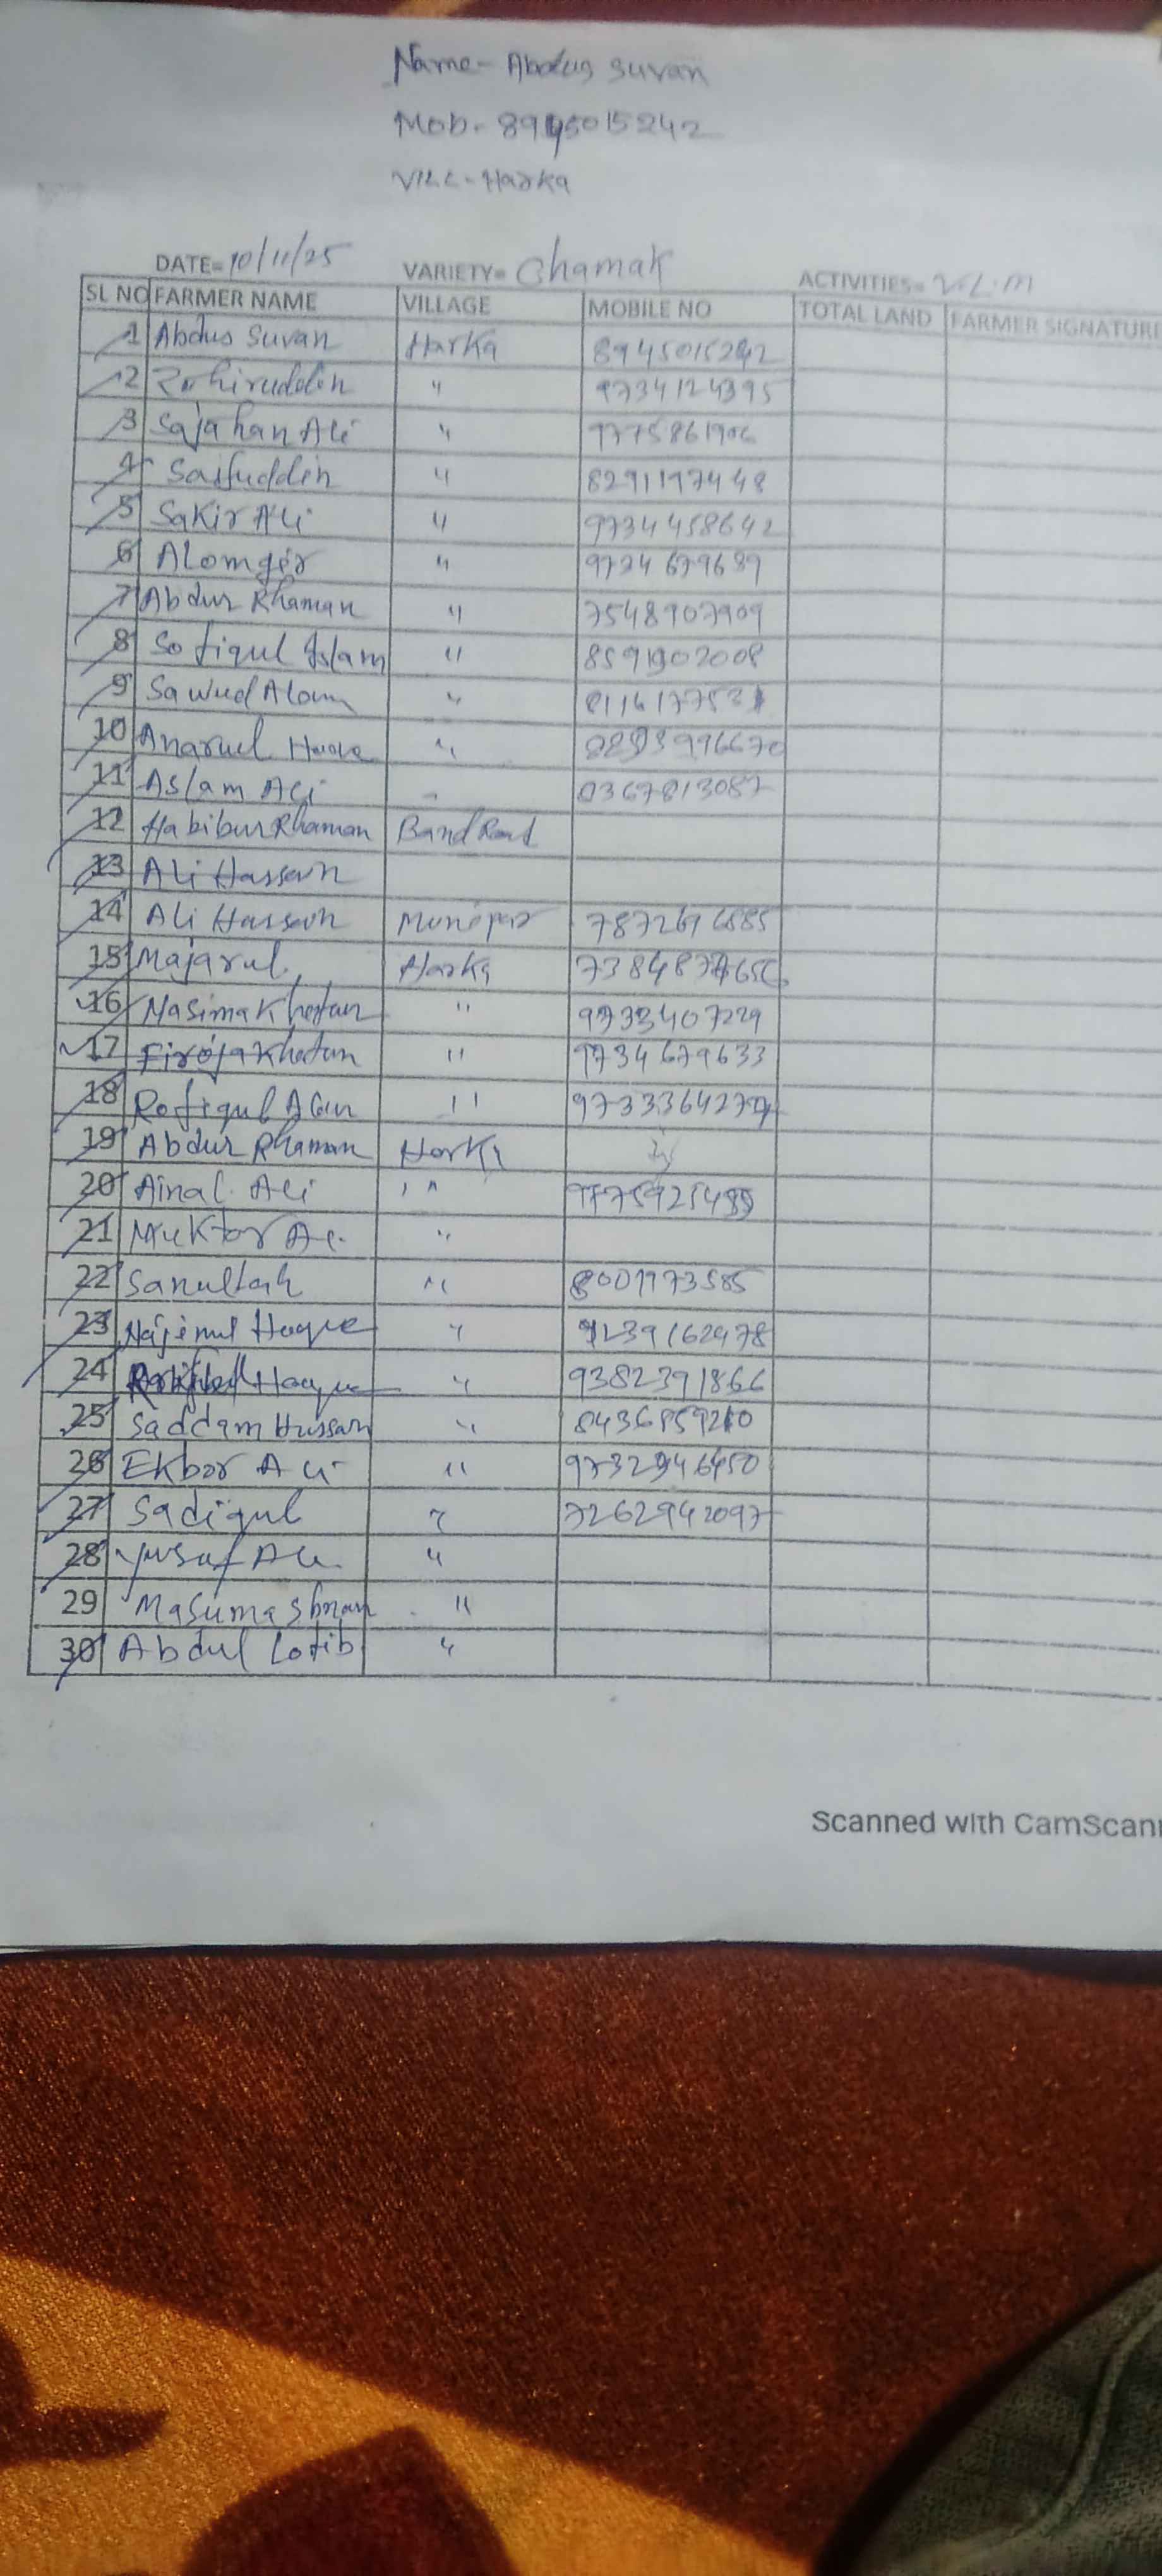 Name- Abdus Suvan
Mob- 8945015242
Vill- Harka
DATE= 10/11/25 VARIETY= Chamak ACTIVITIES= V.L.M
SL NO FARMER NAME VILLAGE MOBILE NO TOTAL LAND FARMER SIGNATURE
1 Abdus Suvan Harka 8945015242
2 " 9734124395
3 Sajahan Ali " 9775861906
4 Saifuddin " 8291197448
5 Sakir Ali " 9734458642
6 Alomgir "
7 Abdur Rhaman " 7548907909
8 Sofiqul Islam "
9 Sawud Alom "
10 Anarul Haque "
11 Aslam Ali
12 Habibur Rhaman Band Road
13 Ali Hassain
14 Ali Hassain
15 Majarul Harka
16 Masima Khatun " 9733407229
17 Firoja Khatun " 9734679633
18 Rofiqul Alam "
19 Abdur Rhaman Harka
20 Ainal Ali "
21 Muktar Ali "
22 Sanullah " 8001973585
23 Najimul Haque "
24 Haque " 9382391866
25 Saddam Hussan "
26 Ekbor Ali "
27 Sadiqul " 7262942097
28 Yusuf Ali "
29 Masuma "
30 Abdul Lotib "
Scanned with CamScann